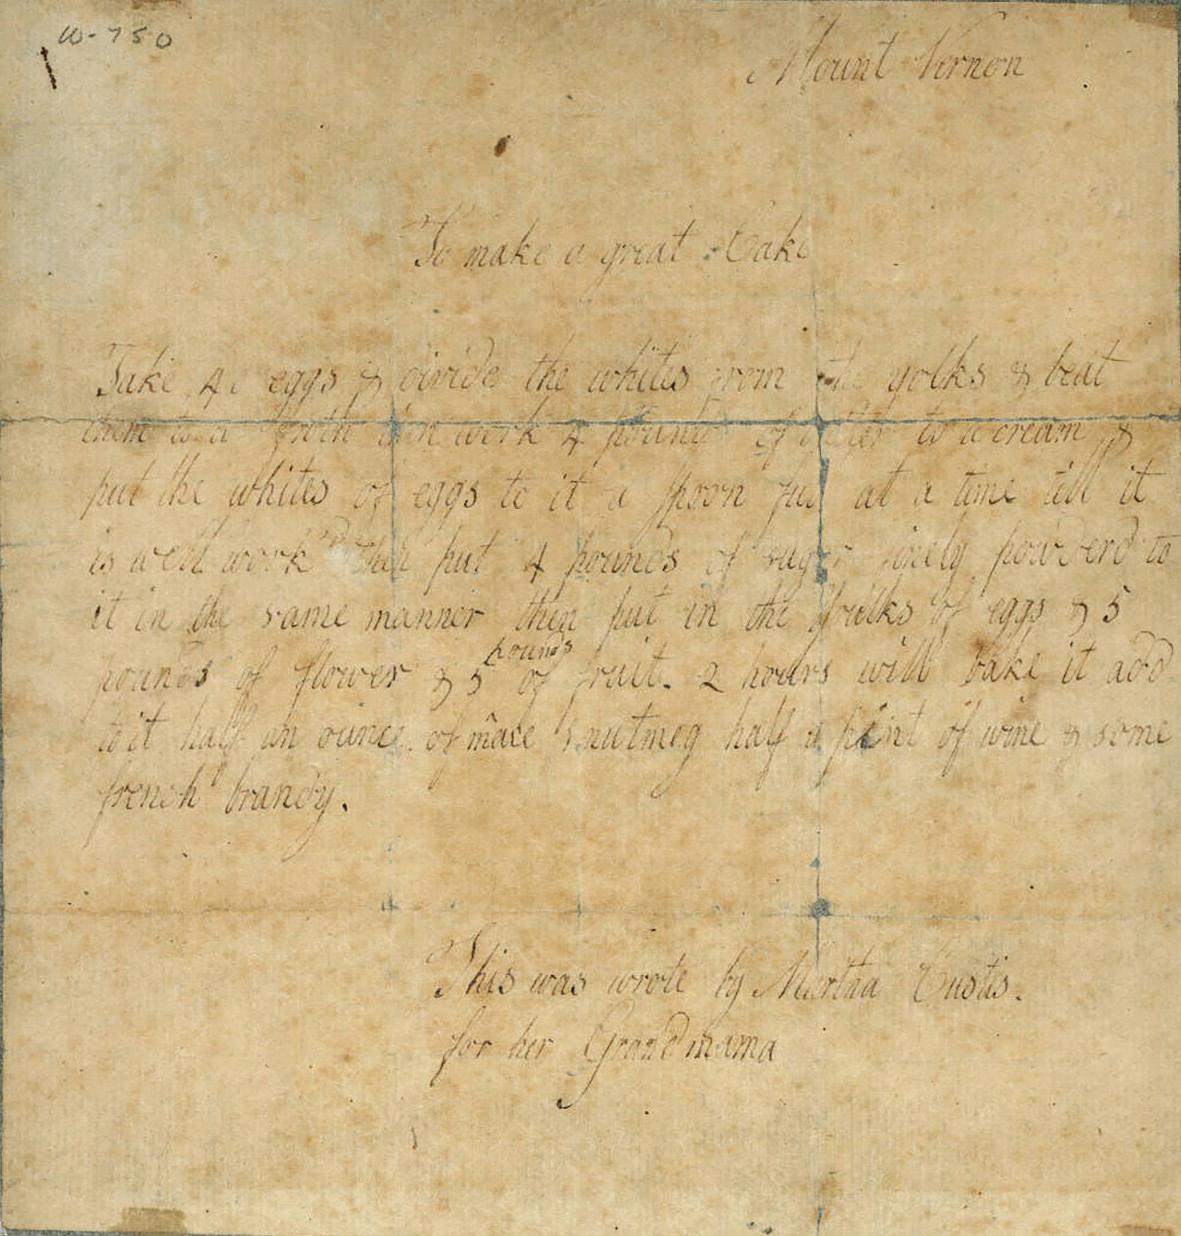 W-750
Mount Vernon
To make a great Cake
Take 40 eggs & divide the whites from the yolks & beat
them to a froth then work 4 pounds of butter to a cream &
put the whites of eggs to it a spoon full at a time till it
is well work'd then put 4 pounds of suger finely powderd to
it in the same manner then put in the Youlks of eggs & 5
pounds of flower & 5 pounds of fruit. 2 hours will bake it add
to it half an ounce of mace 1 nutmeg half a pint of wine & some
french brandy.
This was wrote by Martha Custis.
for her Grandmama